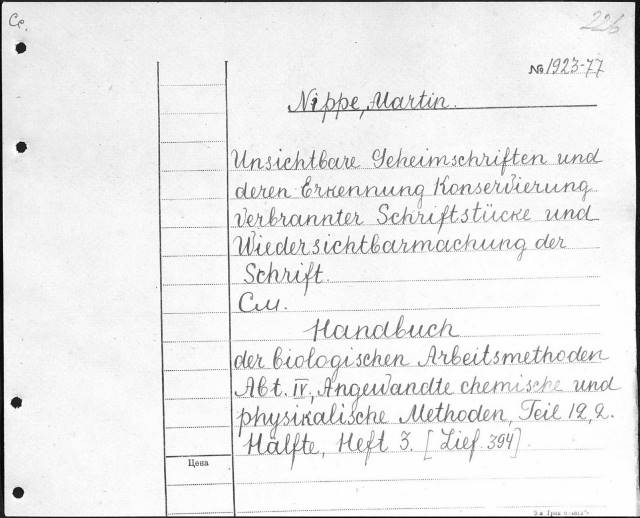 Ce.
226
№ 1923-77
Nippe, Martin.
Unsichtbare Geheimschriften und
deren Erkennung Konservierung
verbrannter Schriftstücke und
Wiedersichtbarmachung der
Schrift.
См.
Handbuch
der biologischen Arbeitsmethoden
Abt. IV, Angewandte chemische und
physikalische Methoden, Teil 12, 2.
Hälfte, Heft 3. [Lief. 394].
Цена